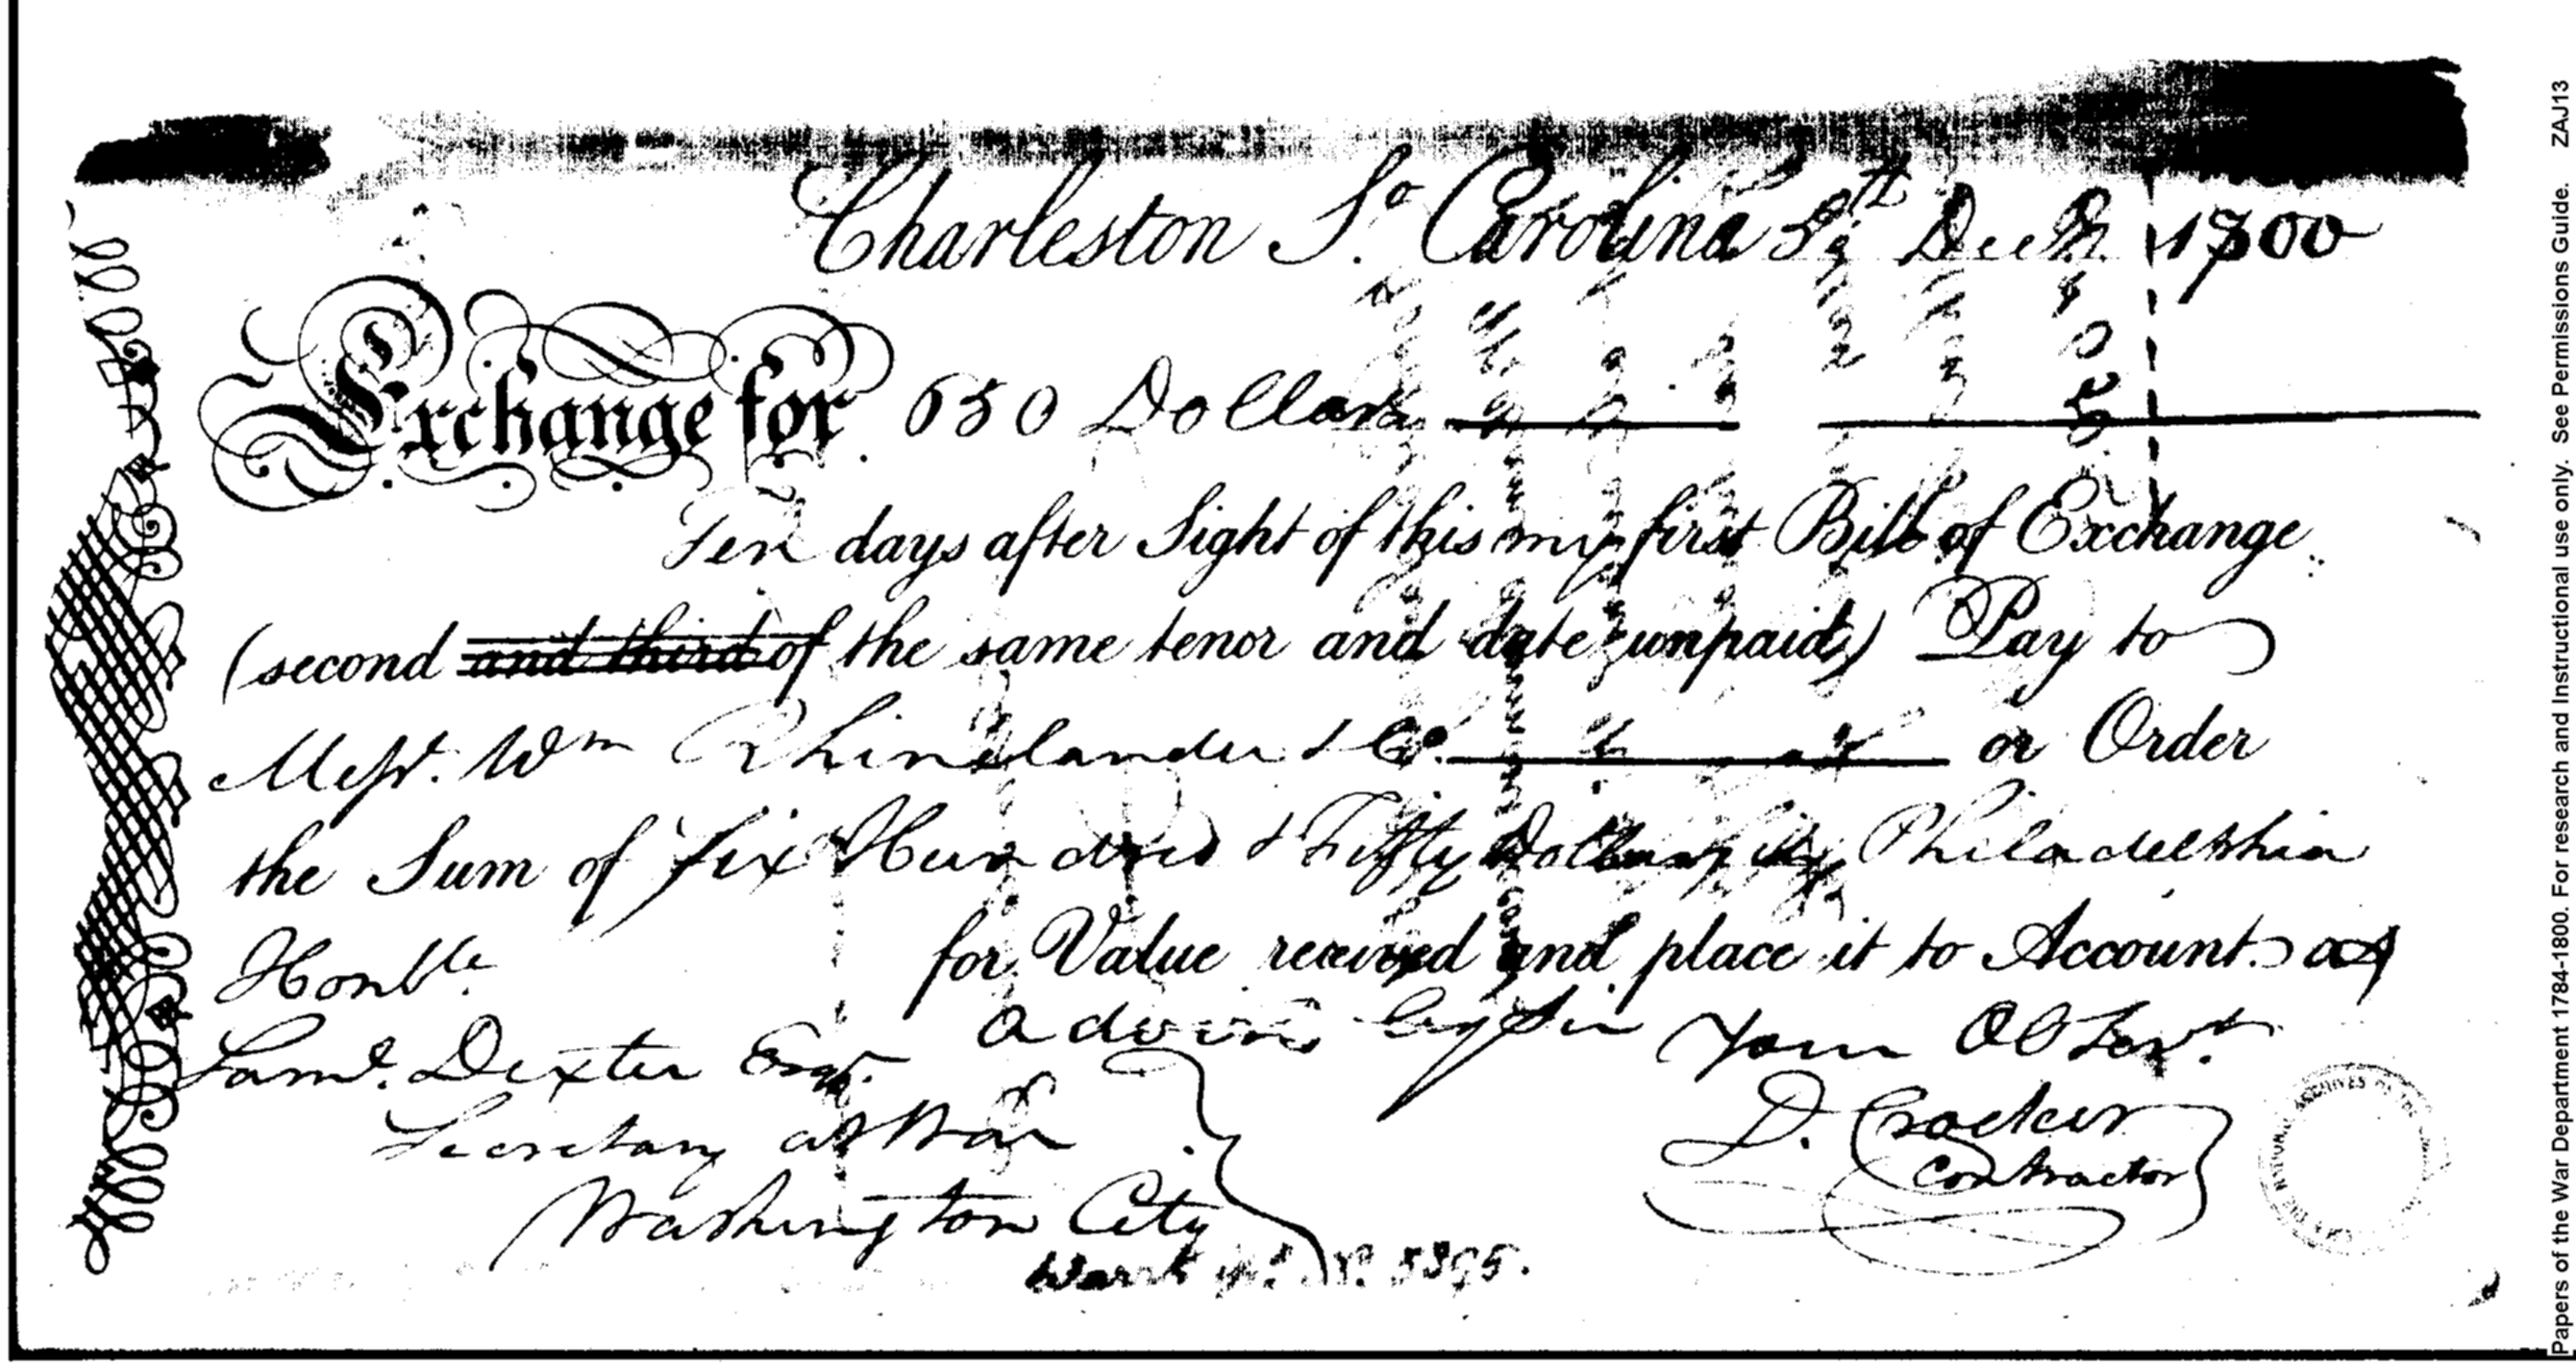 Charleston So. Carolina Decr. 1800
Exchange for 650 Dollars
Ten days after Sight of this my first Bill of Exchange
(second and third of the same tenor and date unpaid) Pay to
Messrs. Wm Rhinelander & Co. or Order
the Sum of Six Hundred & Fifty Dollars in Philadelphia
Honble. for Value received and place it to Account as
advised by Sir Your Ob Servt.
Saml. Dexter Esqr.
Secretary at War
Washington City
D. Crocker
Contractor
Warrt
Papers of the War Department 1784-1800. For research and Instructional use only. See Permissions Guide. ZAJ13